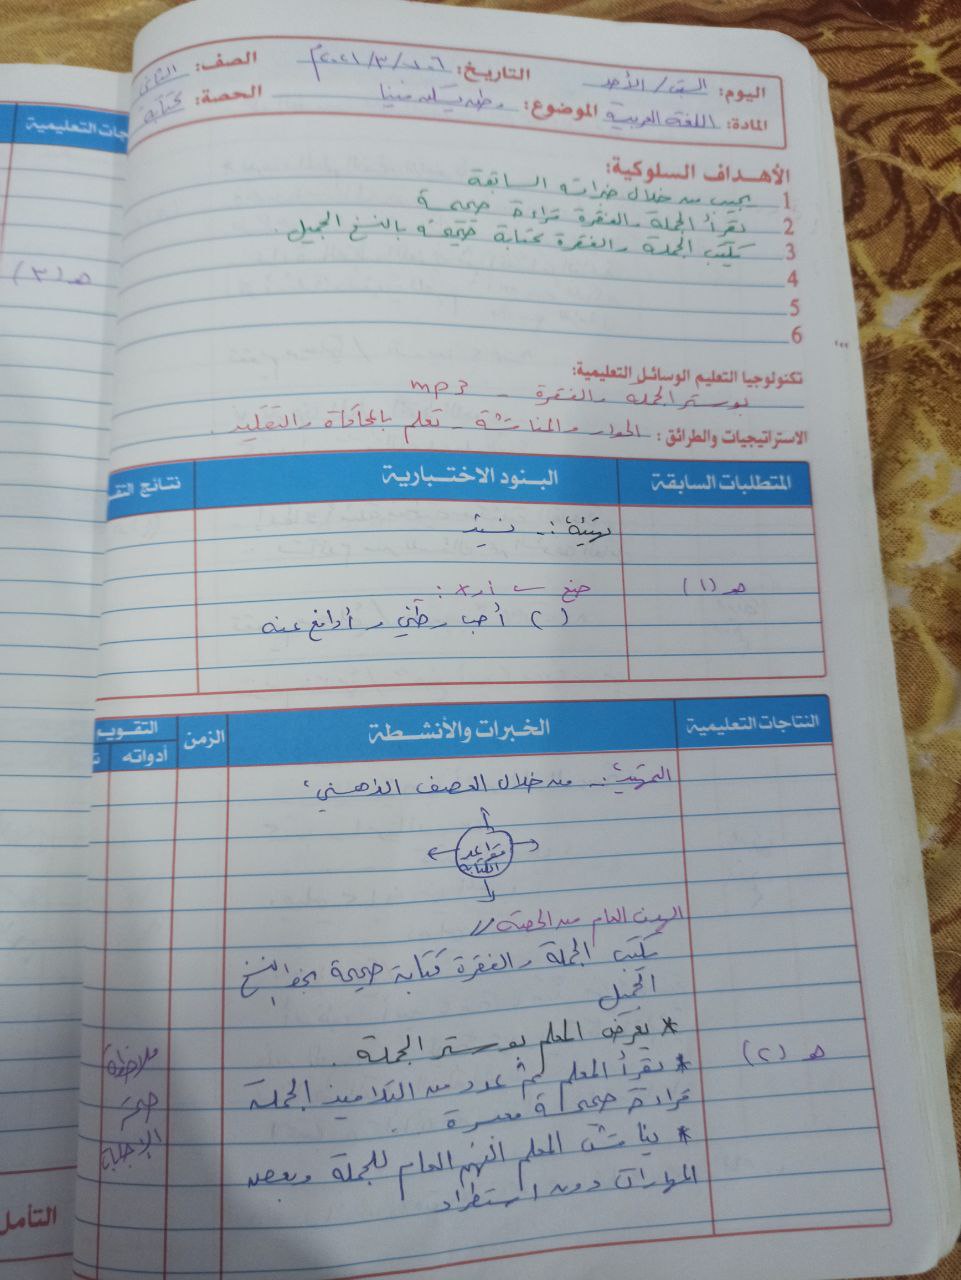 اليوم: السبت / الأحد التاريخ: ٦-٧ / ٣ / ٢٠٢١م الصف: الثاني
المادة: اللغة العربية الموضوع: وطن يسكن فينا الحصة: كتابة
الأهداف السلوكية:
1 يجيب من خلال خبراته السابقة
2 يقرأ الجملة والفقرة قراءة صحيحة
3 يكتب الجملة والفقرة كتابة صحيحة بالنسخ الجميل.
4
5
6
تكنولوجيا التعليم الوسائل التعليمية:
بوستر الجملة والفقرة - mp3
الاستراتيجيات والطرائق: الحوار والمناقشة - تعلم بالمحاكاة والتقليد.
المتطلبات السابقة البنود الاختبارية نتائج التقو
تهيئة:- نشيد
هـ (١) ضع ← أو x :
( ) أحب وطني وأدافع عنه
النتاجات التعليمية الخبرات والأنشطة الزمن التقويم
أدواته
التمهيد:- من خلال العصف الذهني:
قواعد
الكتابة
الهدف العام من الحصة //
يكتب الجملة والفقرة كتابة صحيحة بخط النسخ
الجميل
* يعرض المعلم بوستر الجملة.
هـ (٢) * يقرأ المعلم ثم عدد من التلاميذ الجملة
قراءة صحيحة معبرة
* يناقش المعلم الفهم العام للجملة وبعض
المهارات دون استطراد
ملاحظة
صحة
الإجابات
جات التعليمية
هـ (٣)
التأمل